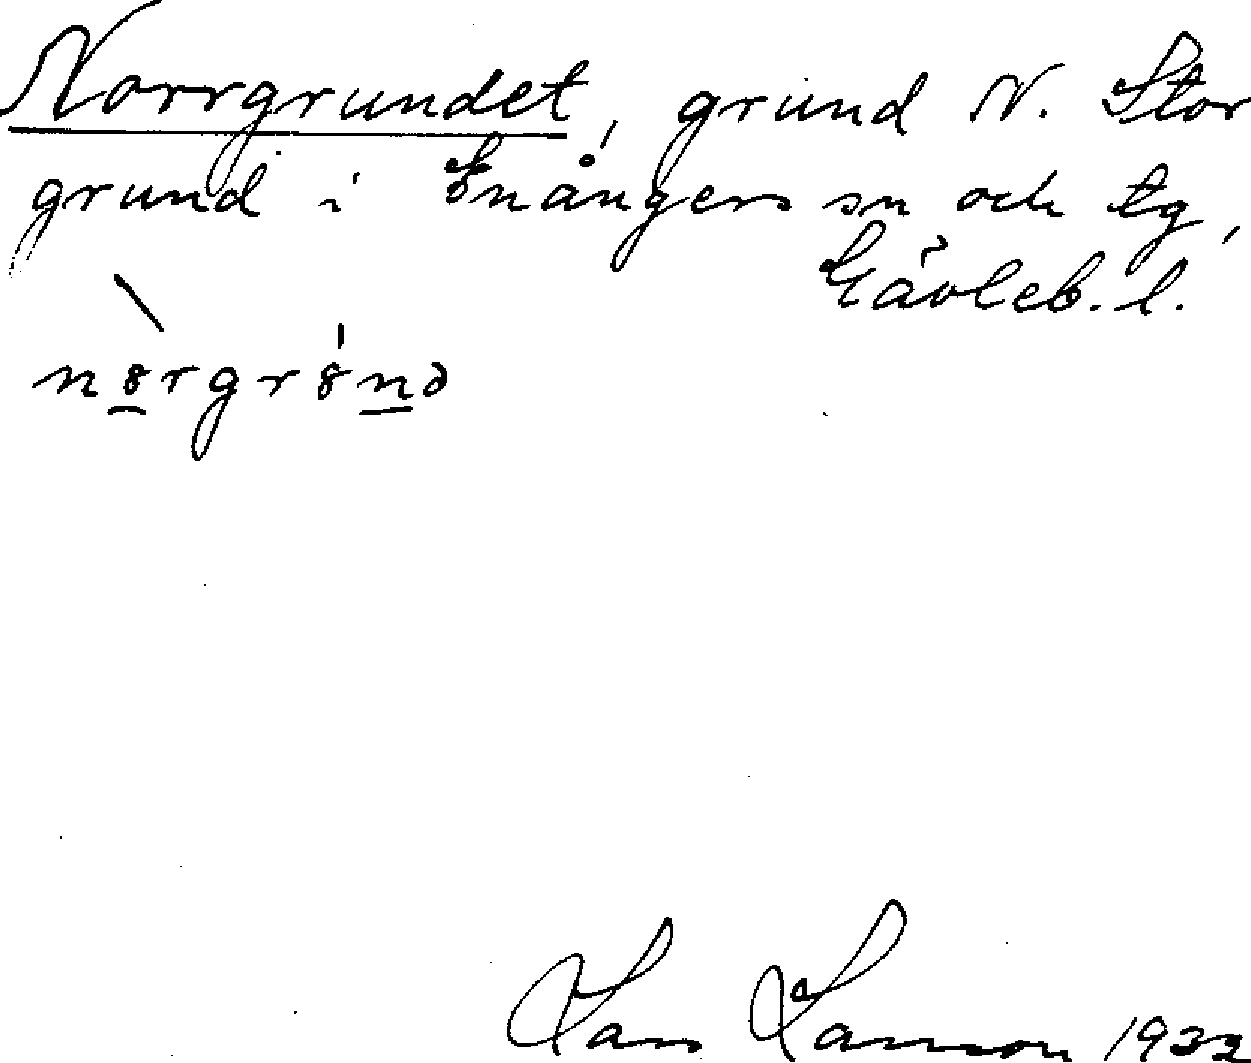 Norrgrundet, grund N. Stor
grund i Enångers sn och tg,
Gävleb. l.
nørgrønd
Lars Larsson 1933